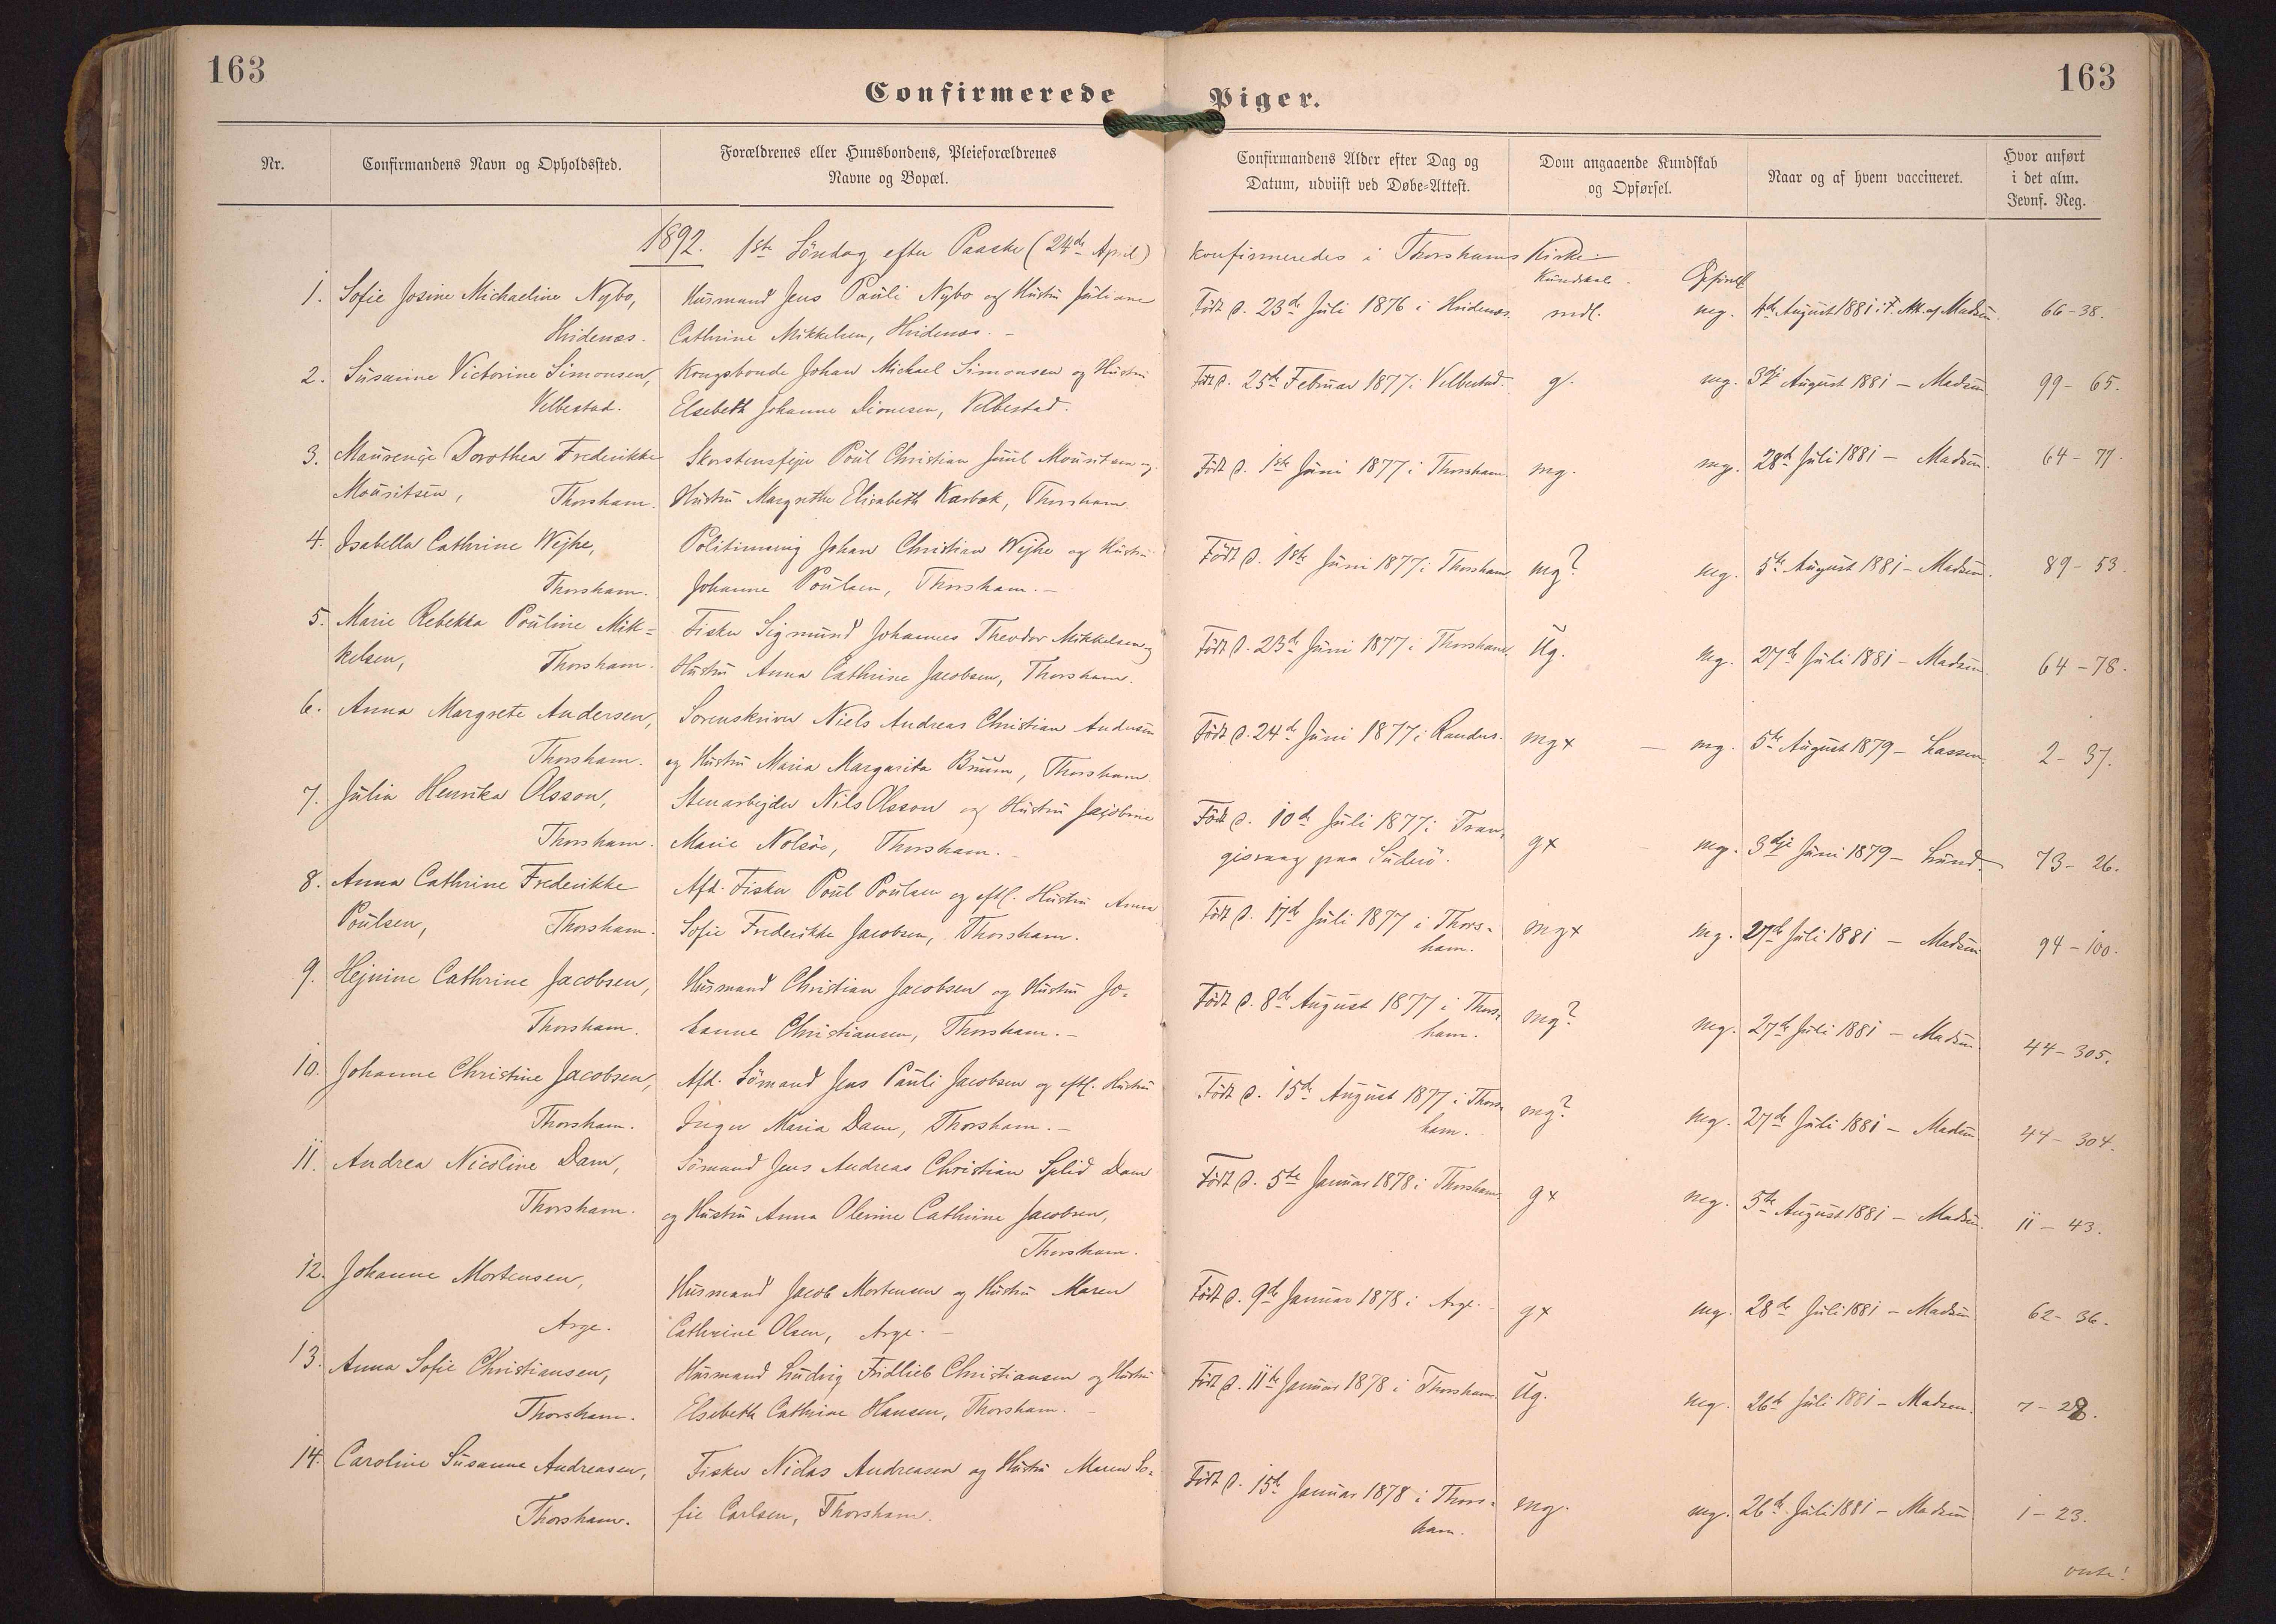 163
163
Confirmerede Piger.
Nr.
Confirmandens Navn og Opholdssted.
Forældrenes eller Huusbondens, Pleieforældrenes
Navne og Bopæl.
Confirmandens Alder efter Dag og
Datum, udviist ved Døbe-Attest.
Dom angaaende Kundskab
og Opførsel.
Naar og af hvem vaccineret.
Hvor anført
i det alm.
Jevnf. Reg.
1892. 1ste Söndag efter Paaske (24de April) konfirmeredes i Thorshavns Kirke
Kundskab. Opförsel
1. Sofie Josine Michaeline Nybo, Husmand Jens Pauli Nybo og Hustru Juliane Födt d. 23de Juli 1876 i Hvidenæs. mdl. mg. 4de August 1881 i T. Mk. af Madsen. 66-38.
Hvidenæs. Cathrine Mikkelsen, Hvidenæs. -
2. Susanne Victorine Simonsen, Kongsbonde Johan Michael Simonsen og Hustru Födt d. 25de Februar 1877 i Velbestad. g. mg. 3dje August 1881 - Madsen 99-65.
Velbestad. Elsebeth Johanne Dionesen, Velbestad.
3. Maurenze Dorothea Frederikke Skorstensfejer Poul Christian Juul Mouritsen og Födt d. 1ste Juni 1877 i Thorshavn mg. mg. 28de Juli 1881 - Madsen. 64-77.
Mouritsen, Thorshavn. Hustru Margrethe Elisabeth Karbæk, Thorshavn.
4. Isabella Cathrine Wejhe, Politimæssig Johan Christian Wejhe og Hustru Födt d. 1ste Juni 1877 i Thorshavn mg? mg. 5te August 1881 - Madsen. 89-53.
Thorshavn. Johanne Poulsen, Thorshavn. -
5. Marie Rebekka Pouline Mik= Fisker Sigmund Johannes Theodor Mikkelsen og Födt d. 23de Juni 1877 i Thorshavn. Ug. mg. 27de Juli 1881 - Madsen 64-78.
kelsen, Thorshavn. Hustru Anna Cathrine Jacobsen, Thorshavn.
6. Anna Margrete Andersen, Sorenskriver Niels Andreas Christian Andersen Födt d. 24de Juni 1877 i Randers. mg+ - mg. 5te August 1879 - Lassen. 2-37.
Thorshavn. og Hustru Maria Margarita Bruun, Thorshavn.
7. Julia Henrika Olsson, Stenarbejder Nils Olsson og Hustru Jacobine Födt d. 10de Juli 1877 i Tran, g+ - mg. 3dje Juni 1879 - Lund. 73-26.
Thorshavn. Marie Nolsöe, Thorshavn. - gisvaag paa Suderö.
8. Anna Cathrine Frederikke Afd. Fisker Poul Poulsen og eftl. Hustru Anna Födt d. 17de Juli 1877 i Thors- mg+ mg. 27de Juli 1881 - Madsen 94-100.
Poulsen, Thorshavn. Sofie Frederikke Jacobsen, Thorshavn. havn.
9. Hejnine Cathrine Jacobsen, Husmand Christian Jacobsen og Hustru Jo- Födt d. 8de August 1877 i Thors- mg? mg. 27de Juli 1881 - Madsen. 44-305.
Thorshavn. hanne Christiansen, Thorshavn. - havn.
10. Johanne Christine Jacobsen, Afd. Sömand Jens Pauli Jacobsen og eftl. Hustru Födt d. 15de August 1877 i Thors- mg? mg. 27de Juli 1881 - Madsen. 44-304.
Thorshavn. Inger Maria Dam, Thorshavn. - havn.
11. Andrea Nicoline Dam, Sömand Jens Andreas Christian Splid Dam Födt d. 5te Januar 1878 i Thorshavn. g+ mg. 5te August 1881 - Madsen. 11-43.
Thorshavn. og Hustru Anna Olevine Cathrine Jacobsen,
Thorshavn.
12. Johanne Mortensen, Husmand Jacob Mortensen og Hustru Maren Födt d. 9de Januar 1878 i Arge. g+ mg. 28de Juli 1881 - Madsen 62-36.
Arge. Cathrine Olsen, Arge. -
13. Anna Sofie Christiansen, Husmand Ludvig Fridlieb Christiansen og Hustru Födt d. 11te Januar 1878 i Thorshavn. Ug. mg. 26de Juli 1881 - Madsen. 7-28.
Thorshavn. Elsebeth Cathrine Hansen, Thorshavn. -
14. Caroline Susanne Andreasen, Fisker Niclas Andreasen og Hustru Maren So- Födt d. 15de Januar 1878 i Thors- mg. mg. 26de Juli 1881 - Madsen 1-23.
Thorshavn. fie Carlsen, Thorshavn. havn.
verte!